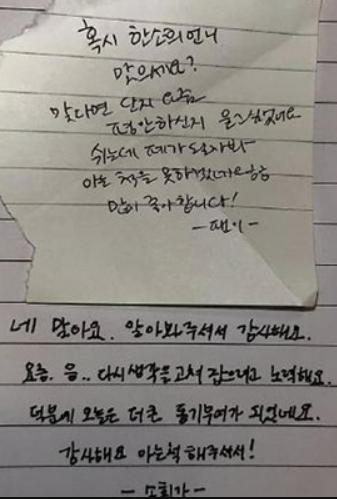 혹시 한소희언니
맞으세요?
맞다면 단지 요즘
평안하신지 묻고싶었어요
쉬는데 폐가 될까봐
아는 척을 못하겠어요ㅎㅎ
많이 좋아합니다!
- 팬이 -
네 맞아요. 알아봐주셔서 감사해요.
요즘. 음.. 다시 생각을 고쳐 잡으려고 노력해요.
덕분에 오늘은 더 큰 동기부여가 되었네요.
감사해요 아는척 해주셔서!
- 소희가 -